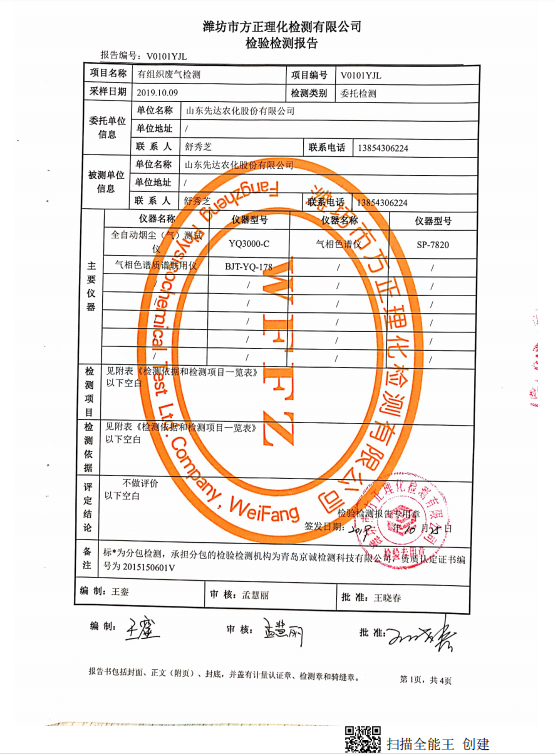 潍坊市方正理化检测有限公司
检验检测报告
报告编号：V0101YJL
项目名称 有组织废气检测 项目编号 V0101YJL
采样日期 2019.10.09 检测类别 委托检测
委托单位信息 单位名称 山东先达农化股份有限公司
单位地址 /
联系人 舒秀芝 联系电话 13854306224
被测单位信息 单位名称 山东先达农化股份有限公司
单位地址 /
联系人 舒秀芝 联系电话 13854306224
主要仪器 仪器名称 仪器型号 仪器名称 仪器型号
全自动烟尘（气）测试仪 YQ3000-C 气相色谱仪 SP-7820
气相色谱质谱联用仪 BJT-YQ-178 / /
/ / / /
/ / / /
/ / / /
/ / / /
检测项目 见附表《检测依据和检测项目一览表》
以下空白
检测依据 见附表《检测依据和检测项目一览表》
以下空白
评定结论 不做评价
以下空白
检验检测报告专用章
签发日期：2019年10月25日
备注 标*为分包检测，承担分包的检验检测机构为青岛京诚检测科技有限公司，资质认定证书编
号为 2015150601V
编 制：王銮 审 核：孟慧丽 批 准：王晓春
编 制： 王銮 审 核： 孟慧丽 批 准： 王晓春
报告书包括封面、正文（附页）、封底，并盖有计量认证章、检测章和骑缝章。 第1页，共4页
潍坊市方正理化检测有限公司
Fangzheng Physicochemical Test Ltd. Company, WeiFang
WFFZ
潍坊市方正理化检测有限公司
检验专用章
扫描全能王 创建